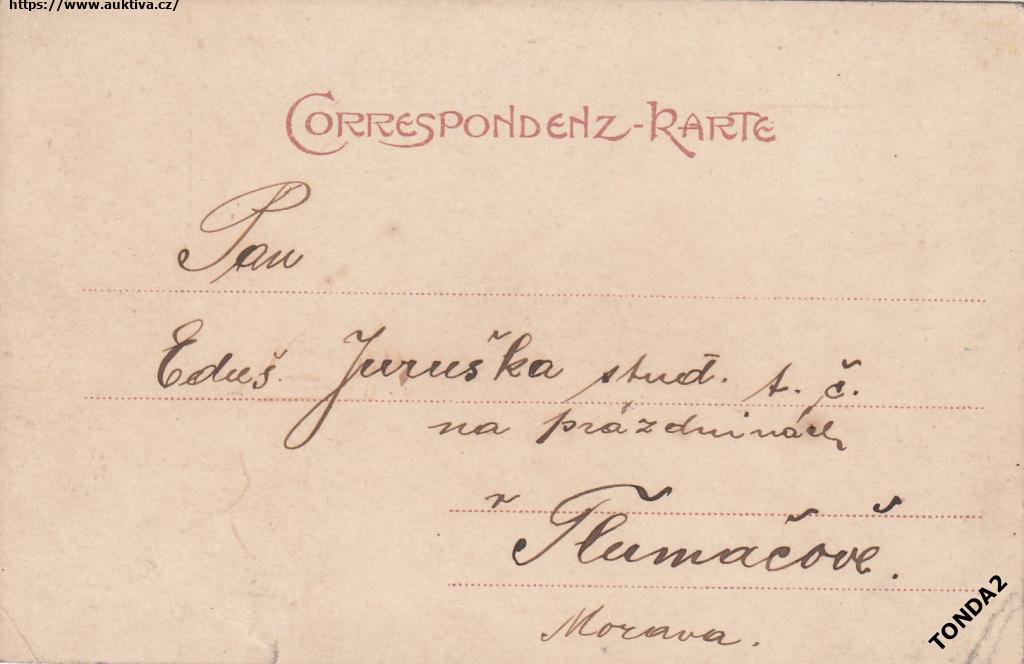 https://www.auktiva.cz/
CORRESPONDENZ-KARTE
Pan
Eduš. Juruška stud. t. č.
na prázdninách
v Tlumačově.
Morava.
TONDA2